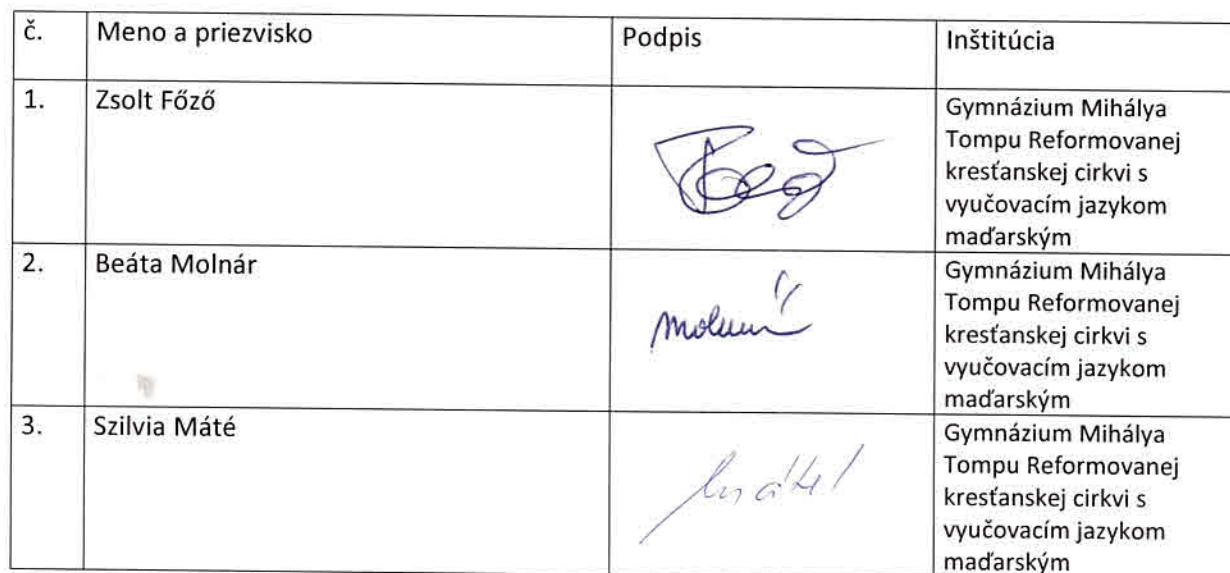 č. Meno a priezvisko Podpis Inštitúcia
1. Zsolt Főző Gymnázium Mihálya
Tompu Reformovanej
kresťanskej cirkvi s
vyučovacím jazykom
maďarským
2. Beáta Molnár Gymnázium Mihálya
Tompu Reformovanej
kresťanskej cirkvi s
vyučovacím jazykom
maďarským
3. Szilvia Máté Gymnázium Mihálya
Tompu Reformovanej
kresťanskej cirkvi s
vyučovacím jazykom
maďarským